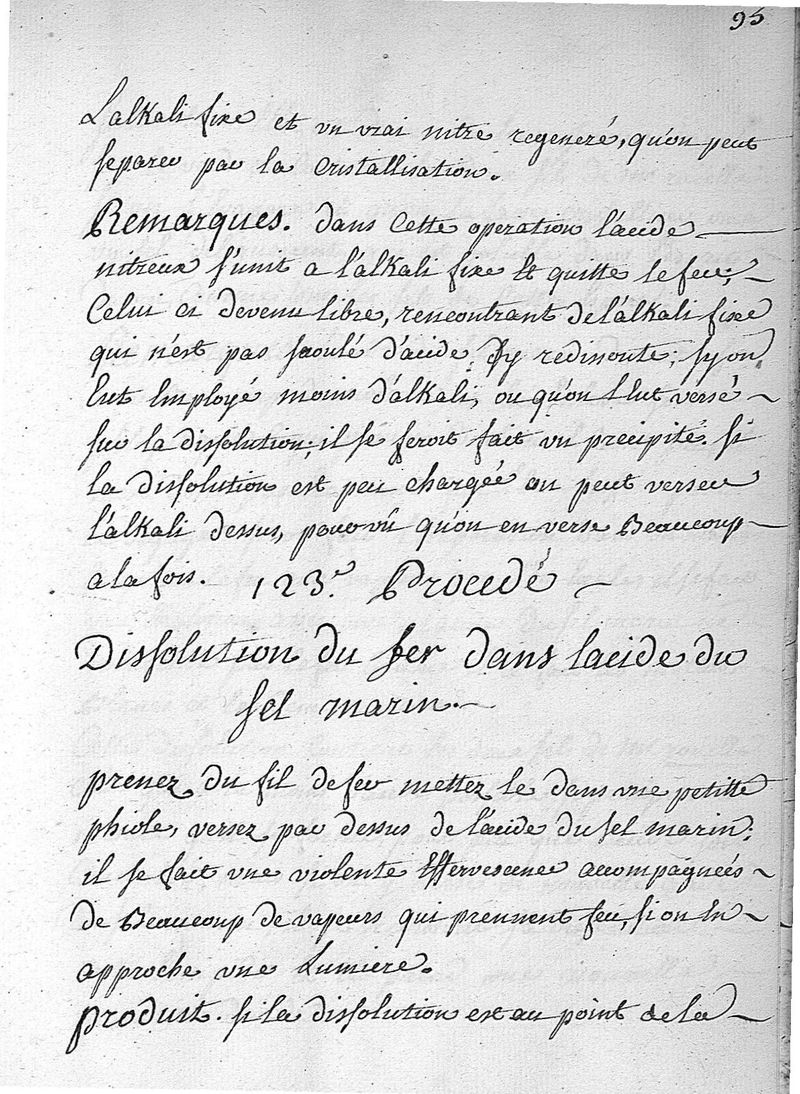 95
L'alkali fixe et un vrai nitre regeneré, qu'on peut
separer par la cristallisation.
Remarques. dans cette operation l'acide
nitreux s'unit a l'alkali fixe et quitte le fer;
Celui ci devenu libre, rencontrant de l'alkali fixe
qui n'est pas saoulé d'acide, s'y redissoute; sy on
Eut Employé moins d'alkali, ou qu'on l'Eut versé
sur la dissolution; il se seroit fait un precipité. si
la dissolution est peu chargée on peut verser
l'alkali dessus, pourvû qu'on en verse Beaucoup
a la fois. 123.e Procedé
Dissolution du fer dans lacide du
sel marin.
prenez du fil de fer mettez le dans une petitte
phiole, versez par dessus de l'acide du sel marin;
il se fait une violente Effervescence accompagneés
de Beaucoup de vapeurs qui prennent feu, si on En
approche une Lumiere.
produit. si la dissolution est au point de la